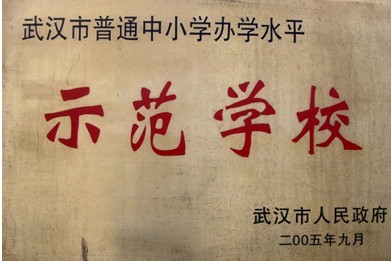 武汉市普通中小学办学水平
示范学校
武汉市人民政府
二00五年九月